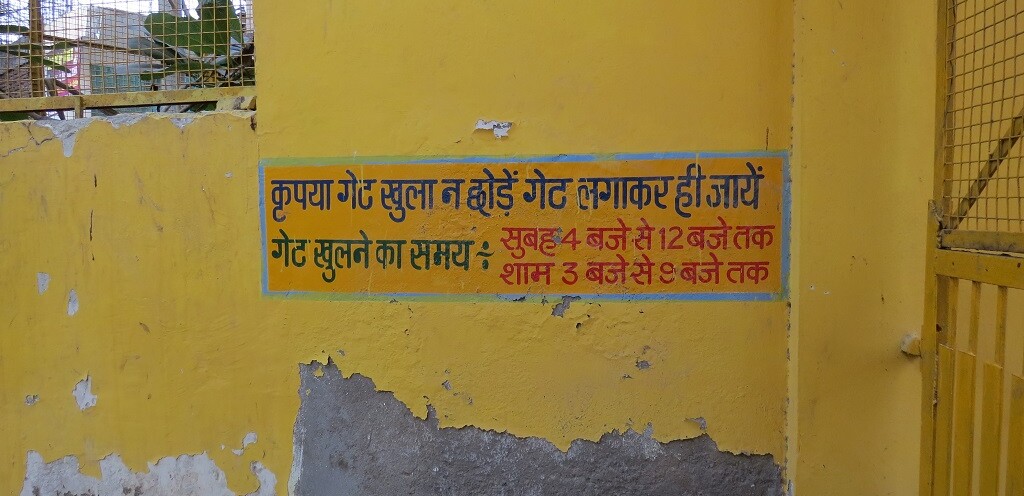 कृपया गेट खुला न छोड़ें गेट लगाकर ही जायें
गेट खुलने का समय ÷ सुबह 4 बजे से 12 बजे तक
शाम 3 बजे से 9 बजे तक